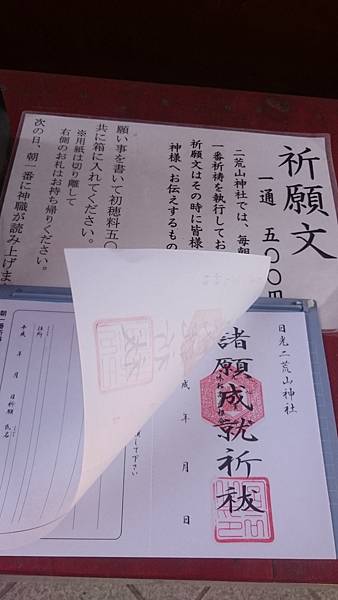 祈願文
一通 五〇〇円
二荒山神社では、毎朝
一番祈祷を執行してお
祈願文はその時に皆様
神様へお伝えするもの
願い事を書いて初穂料五〇
共に箱に入れてください。
※用紙は切り離して
右側のお札はお持ち帰りください。
次の日、朝一番に神職が読み上げま
日光二荒山神社
諸願成就祈祓
成 年 月 日
して下さい
住所
氏名
平成 年 月 日祈願